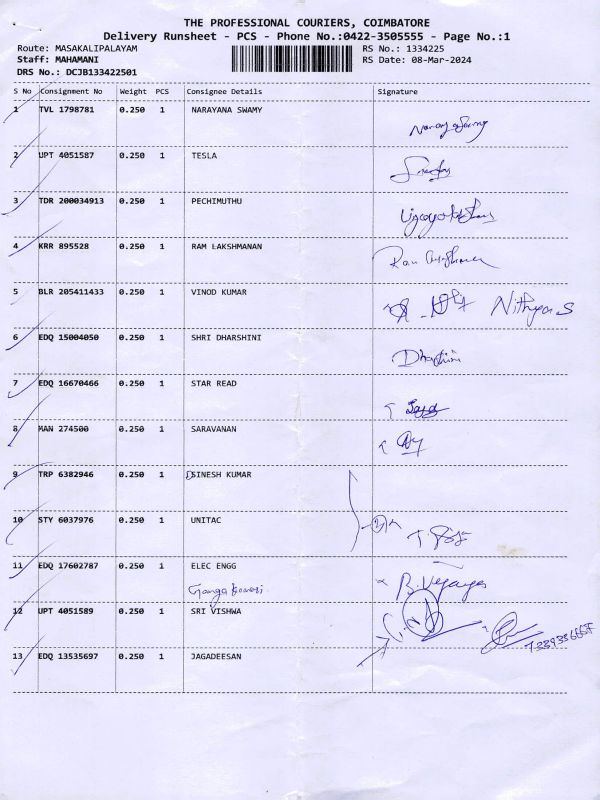 THE PROFESSIONAL COURIERS, COIMBATORE
Delivery Runsheet - PCS - Phone No.:0422-3505555 - Page No.:1
Route: MASAKALIPALAYAM RS No.: 1334225
Staff: MAHAMANI RS Date: 08-Mar-2024
DRS No.: DCJB133422501
S No Consignment No Weight PCS Consignee Details Signature
1 TVL 1798781 0.250 1 NARAYANA SWAMY
2 UPT 4051587 0.250 1 TESLA
3 TDR 200034913 0.250 1 PECHIMUTHU
4 KRR 895528 0.250 1 RAM LAKSHMANAN
5 BLR 205411433 0.250 1 VINOD KUMAR
Nithya S
6 EDQ 15004050 0.250 1 SHRI DHARSHINI
Dharshini
7 EDQ 16670466 0.250 1 STAR READ
8 MAN 274500 0.250 1 SARAVANAN
9 TRP 6382946 0.250 1 DSINESH KUMAR
10 STY 6037976 0.250 1 UNITAC
11 EDQ 17602787 0.250 1 ELEC ENGG
12 UPT 4051589 0.250 1 SRI VISHWA
13 EDQ 13535697 0.250 1 JAGADEESAN